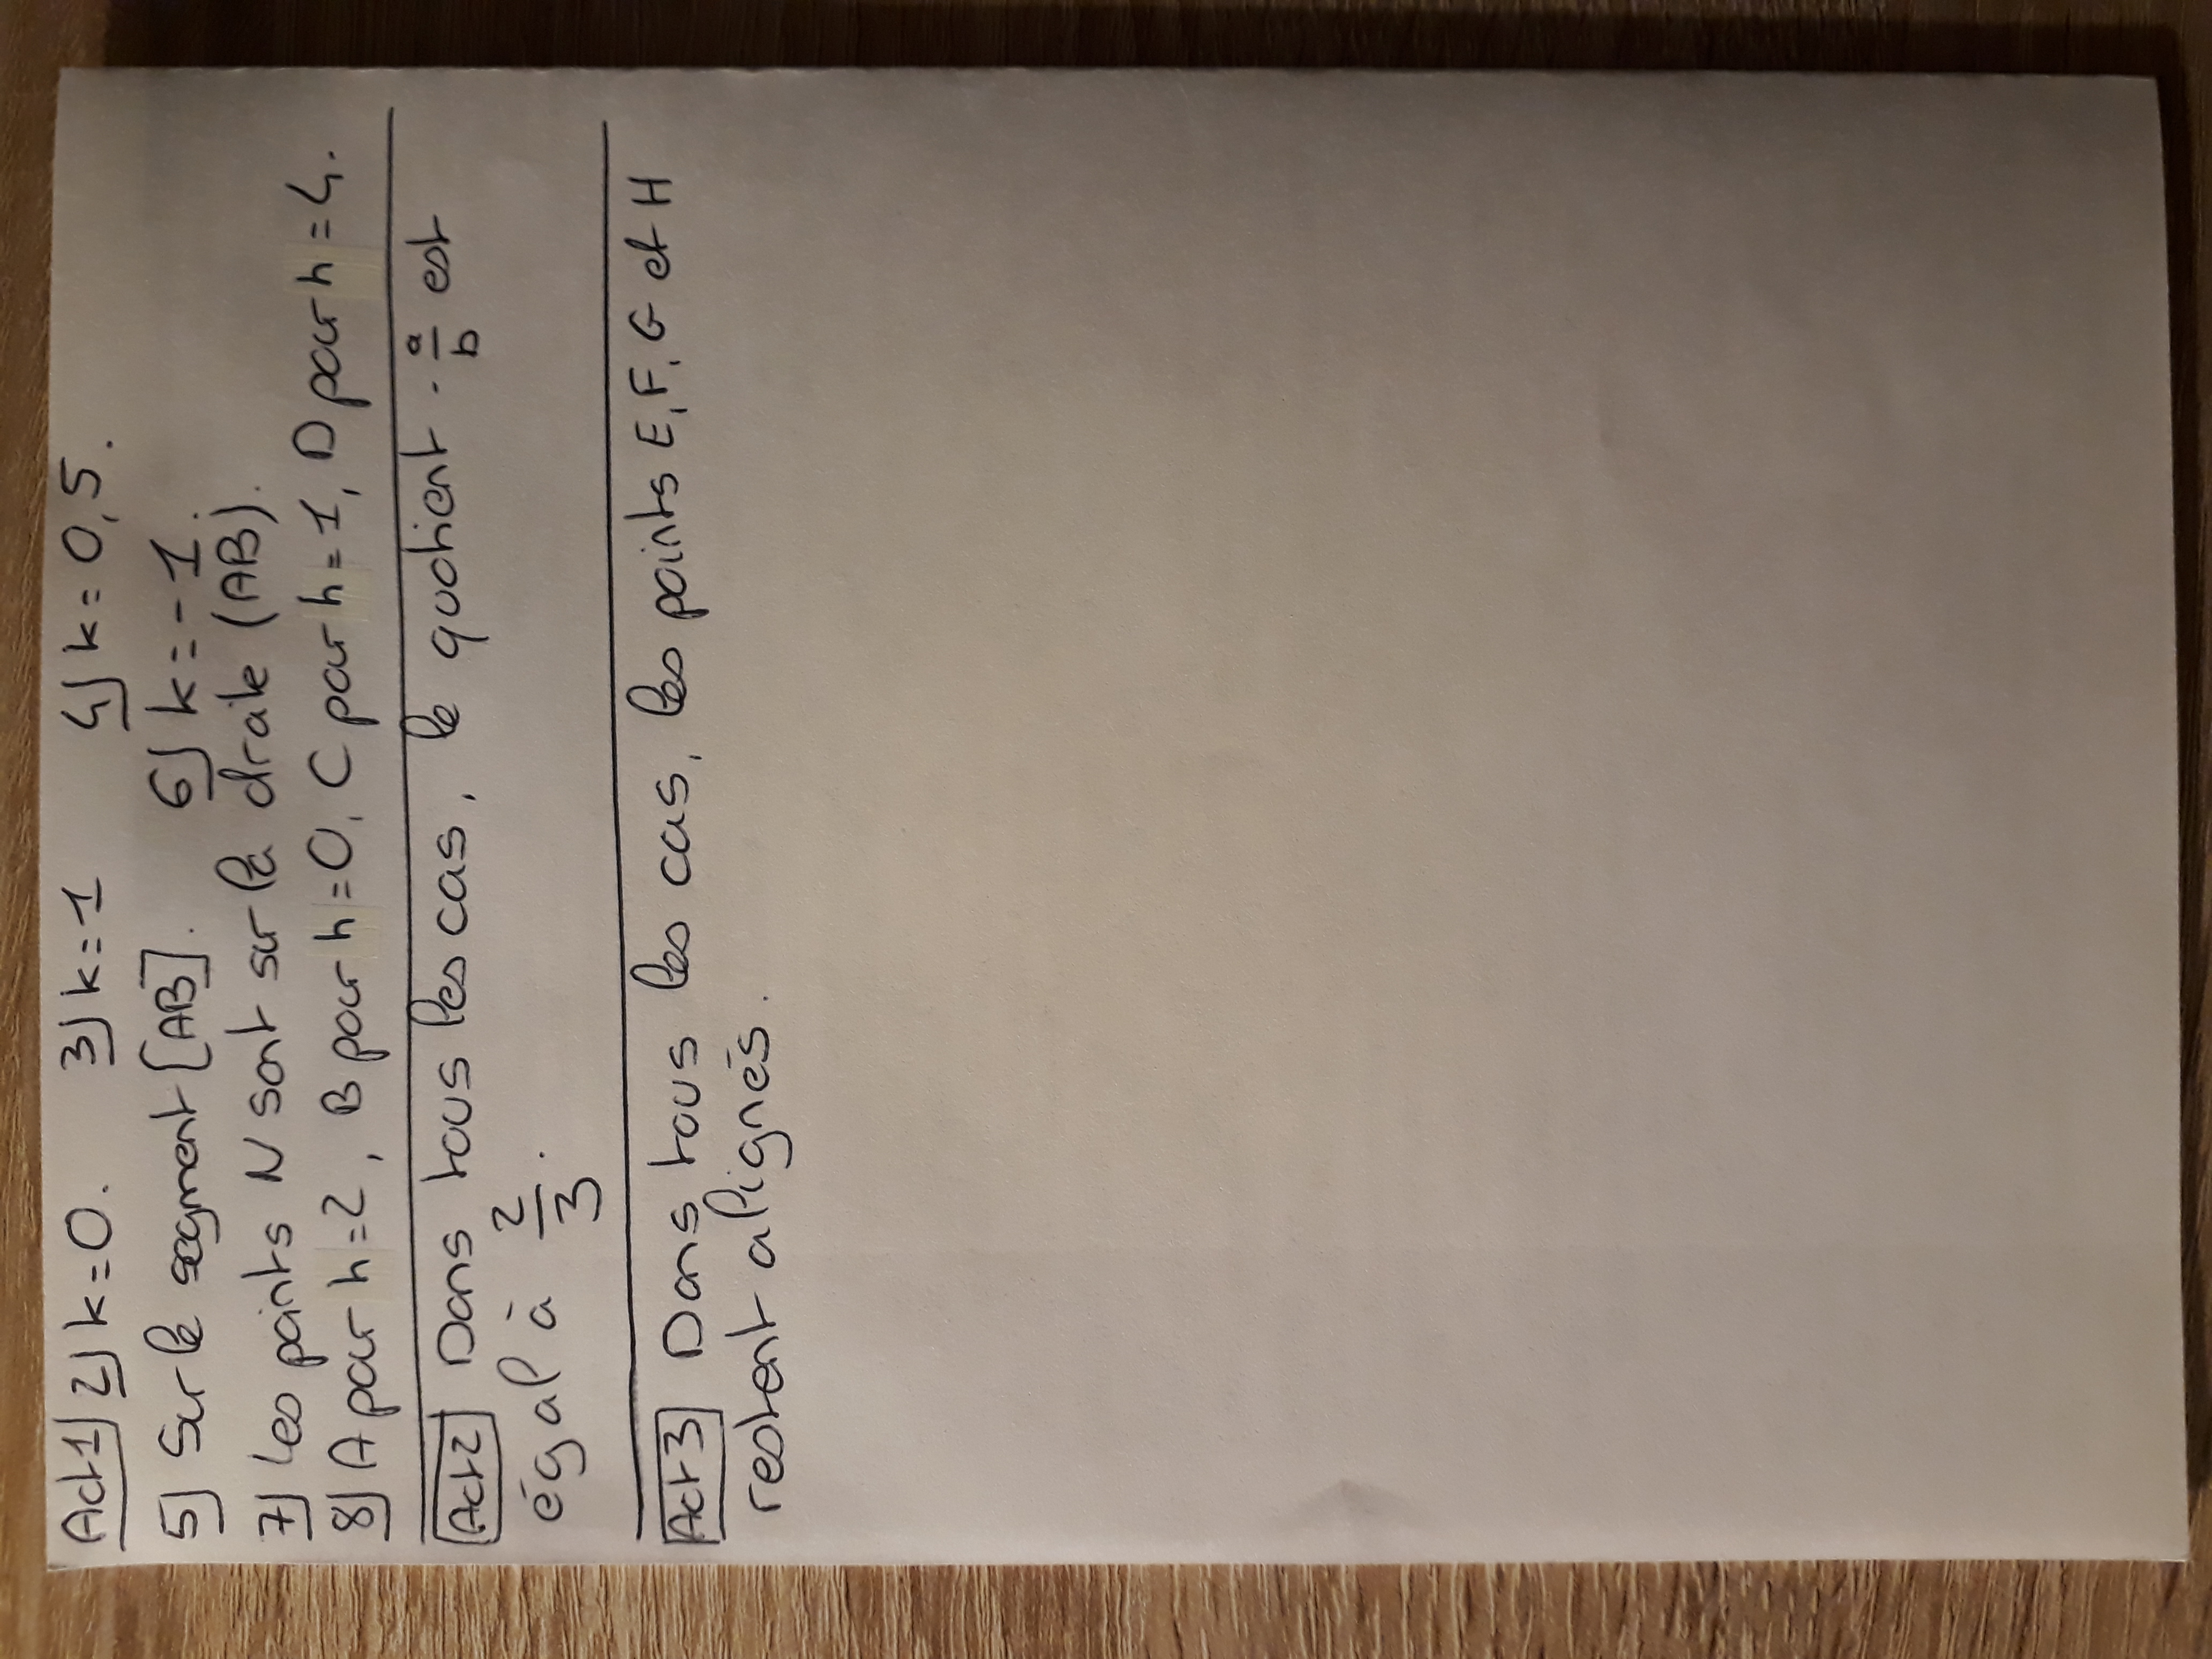 Act1) 2) k=0. 3) k=1 4) k=0,5.
5) Sur le segment [AB]. 6) k=-1.
7) Les points N sont sur la droite (AB).
8) A pour h=2, B pour h=0, C pour h=1, D pour h=4.
Act2 Dans tous les cas, le quotient a/b est
égal à 2/3.
Act3 Dans tous les cas, les points E, F, G et H
restent alignés.